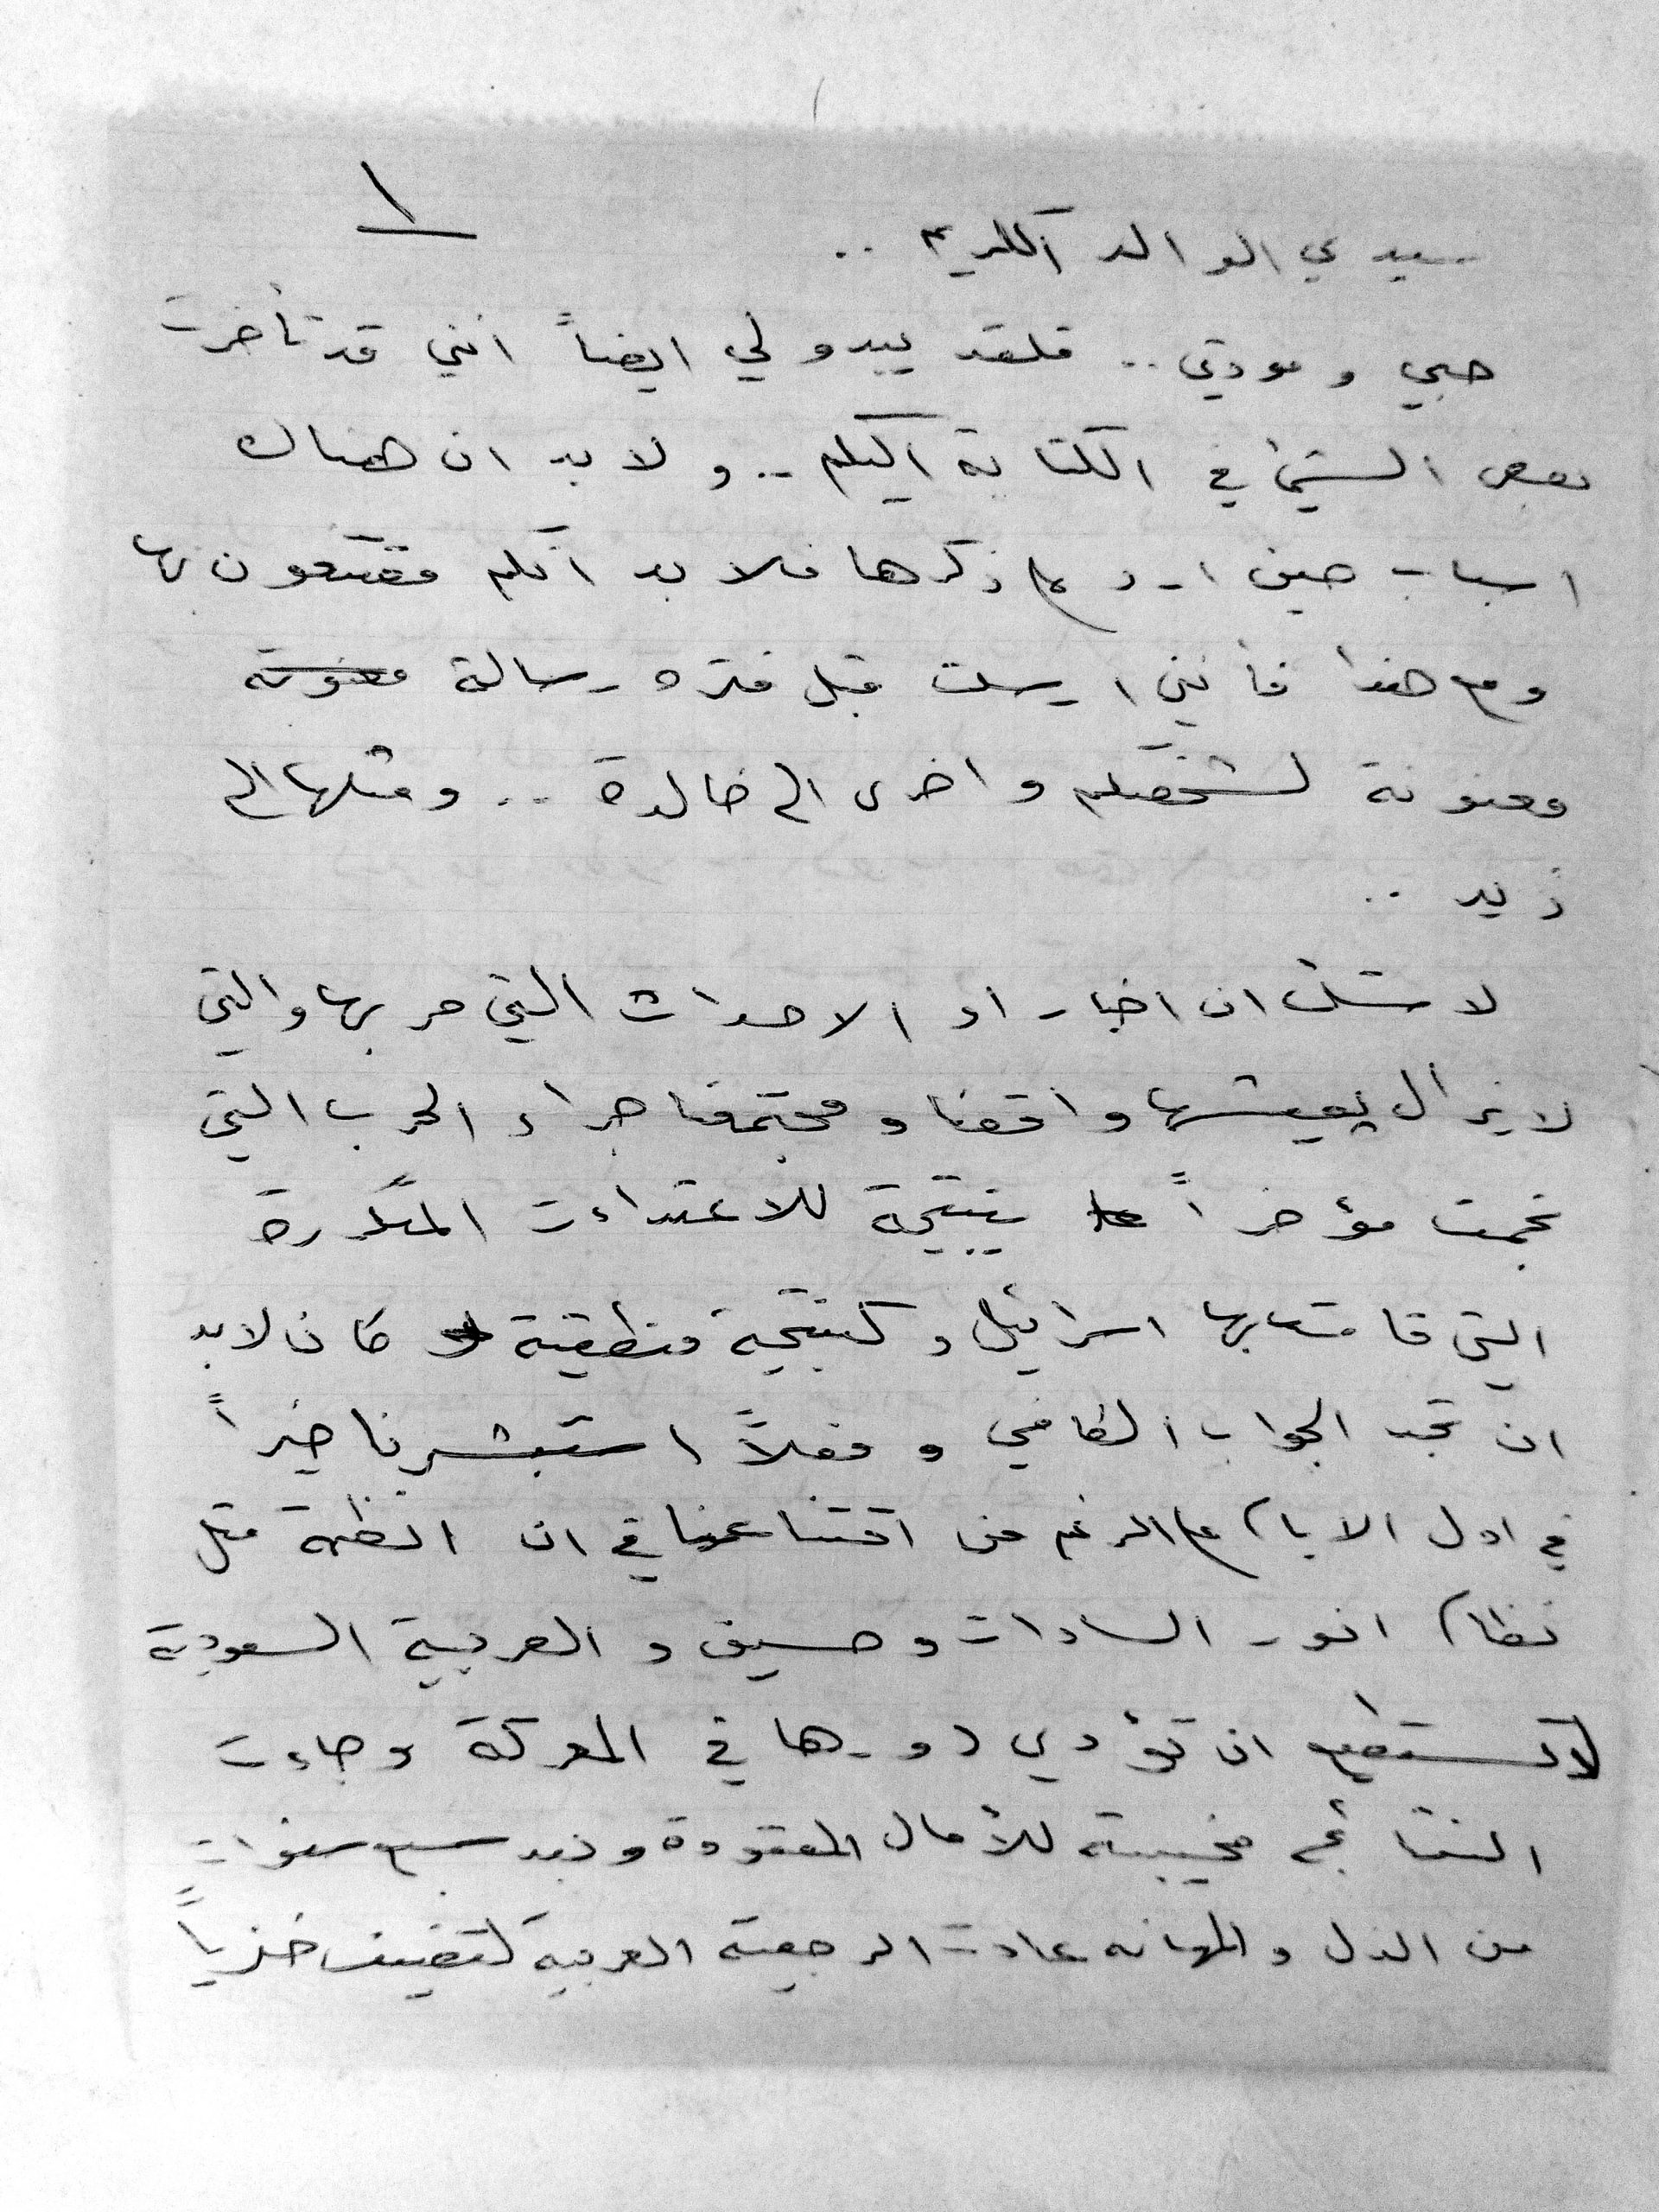 ١
سيدي الوالد الكريم ..
حبي و مودتي .. فلقد يبدو لي ايضاً انني قد تأخرت
بعض الشيئ في الكتابة اليكم .. و لا بد ان هناك
اسباب حين اروم ذكرها فلا بد انكم مقتنعون بها
ومع هذا فأنني ارسلت قبل فتره رسالة معنونة
معنونة لشخصكم و اخرى الى خالدة .. ومثلها الى
زيد ..
لا شك ان اخبار او الاحداث التي مر بها والتي
لا يزال يعيشها واقعنا و مجتمعنا جراء الحرب التي
نجمت مؤخراً نتيجة للاعتداءت المتكررة
التي قامت بها اسرائيل و كنتيجة منطقية كان لابد
ان تجد الجواب الكافي و فعلاً استبشرنا خيراً
في اول الايام مع الرغم من اقتناعنا في ان انظمة مثل
نظام انور السادات و حسين و العربية السعودية
لا تستطيع ان تؤدي دورها في المعركة وجاءت
النتائج مخيبة للأمال المعقودة و بعد سبع سنوات
من الذل والمهانه عادت الرجعية العربية لتضيف خزياً